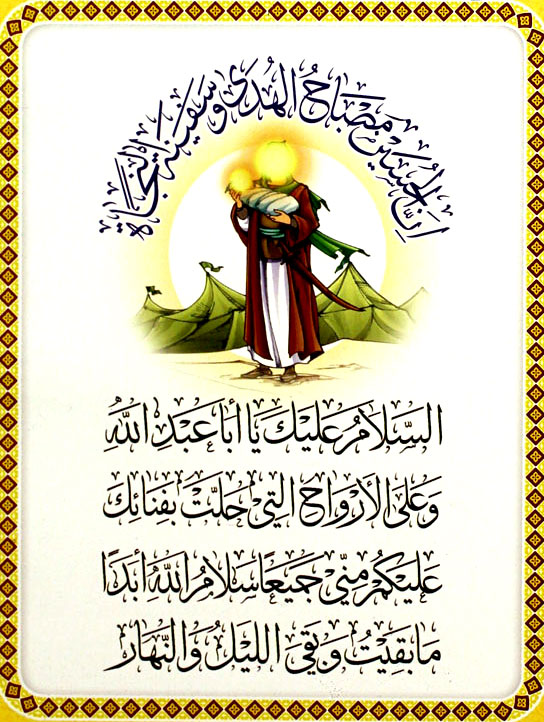 إِنَّ الحُسَيْن مِصْبَاحُ الهُدَى وَسَفِينَةُ النَّجَاةِ
السَّلَامُ عَلَيْكَ يَا أَبَا عَبْدِ اللَّهِ
وَعَلَى الأَرْوَاحِ الَّتِي حَلَّتْ بِفِنَائِكَ
عَلَيْكُمْ مِنِّي جَمِيعًا سَلَامُ اللَّهِ أَبَدًا
مَا بَقِيتُ وَبَقِيَ اللَّيْلُ وَالنَّهَارُ